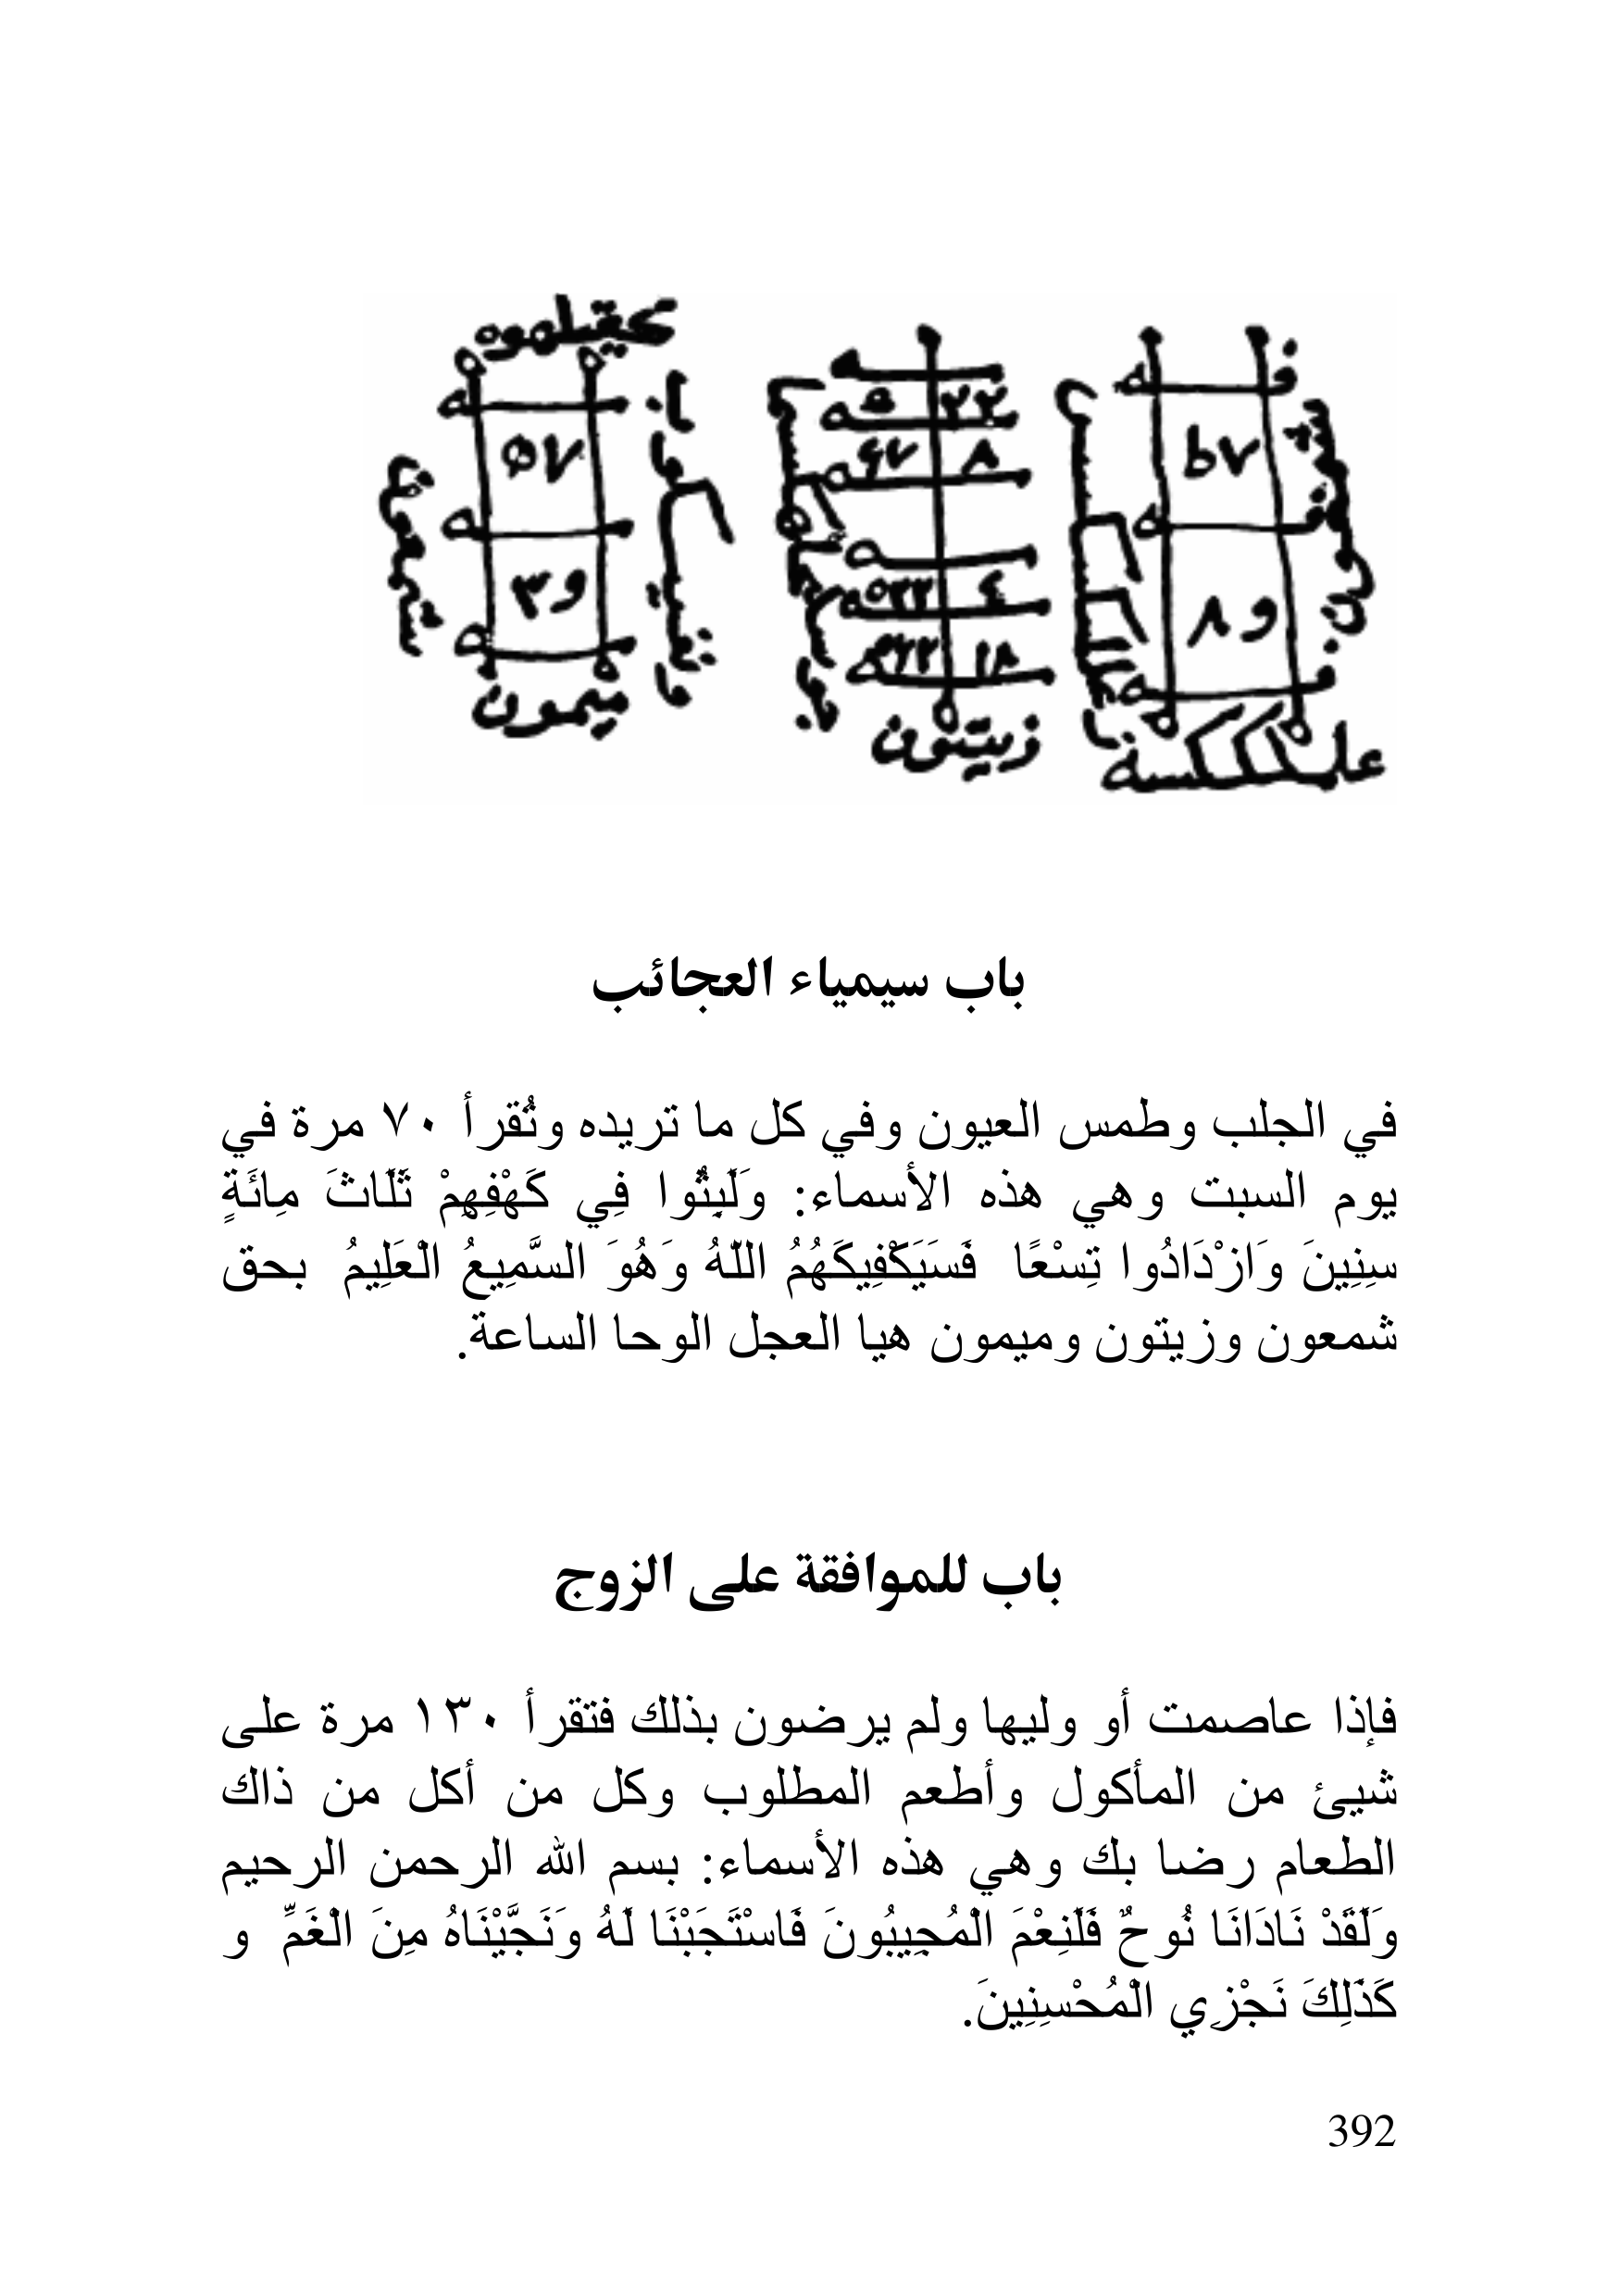 كقيلموه
ميمون
شمعون
٥٧
و٣
٢٢
٨
٦٧
٤
١٨
زيتون
٧
و٨
باب سيمياء العجائب
في الجلب وطمس العيون وفي كل ما تريده وتُقرأ ٧٠ مرة في
يوم السبت وهي هذه الأسماء: وَلَبِثُوا فِي كَهْفِهِمْ ثَلَاثَ مِائَةٍ
سِنِينَ وَازْدَادُوا تِسْعًا فَسَيَكْفِيكَهُمُ اللَّهُ وَهُوَ السَّمِيعُ الْعَلِيمُ بحق
شمعون وزيتون وميمون هيا العجل الوحا الساعة.
باب للموافقة على الزوج
فإذا عاصمت أو وليها ولم يرضون بذلك فتقرأ ١٣٠ مرة على
شيئ من المأكول وأطعم المطلوب وكل من أكل من ذاك
الطعام رضا بك وهي هذه الأسماء: بسم الله الرحمن الرحيم
وَلَقَدْ نَادَانَا نُوحٌ فَلَنِعْمَ الْمُجِيبُونَ فَاسْتَجَبْنَا لَهُ وَنَجَّيْنَاهُ مِنَ الْغَمِّ و
كَذَلِكَ نَجْزِي الْمُحْسِنِينَ.
392